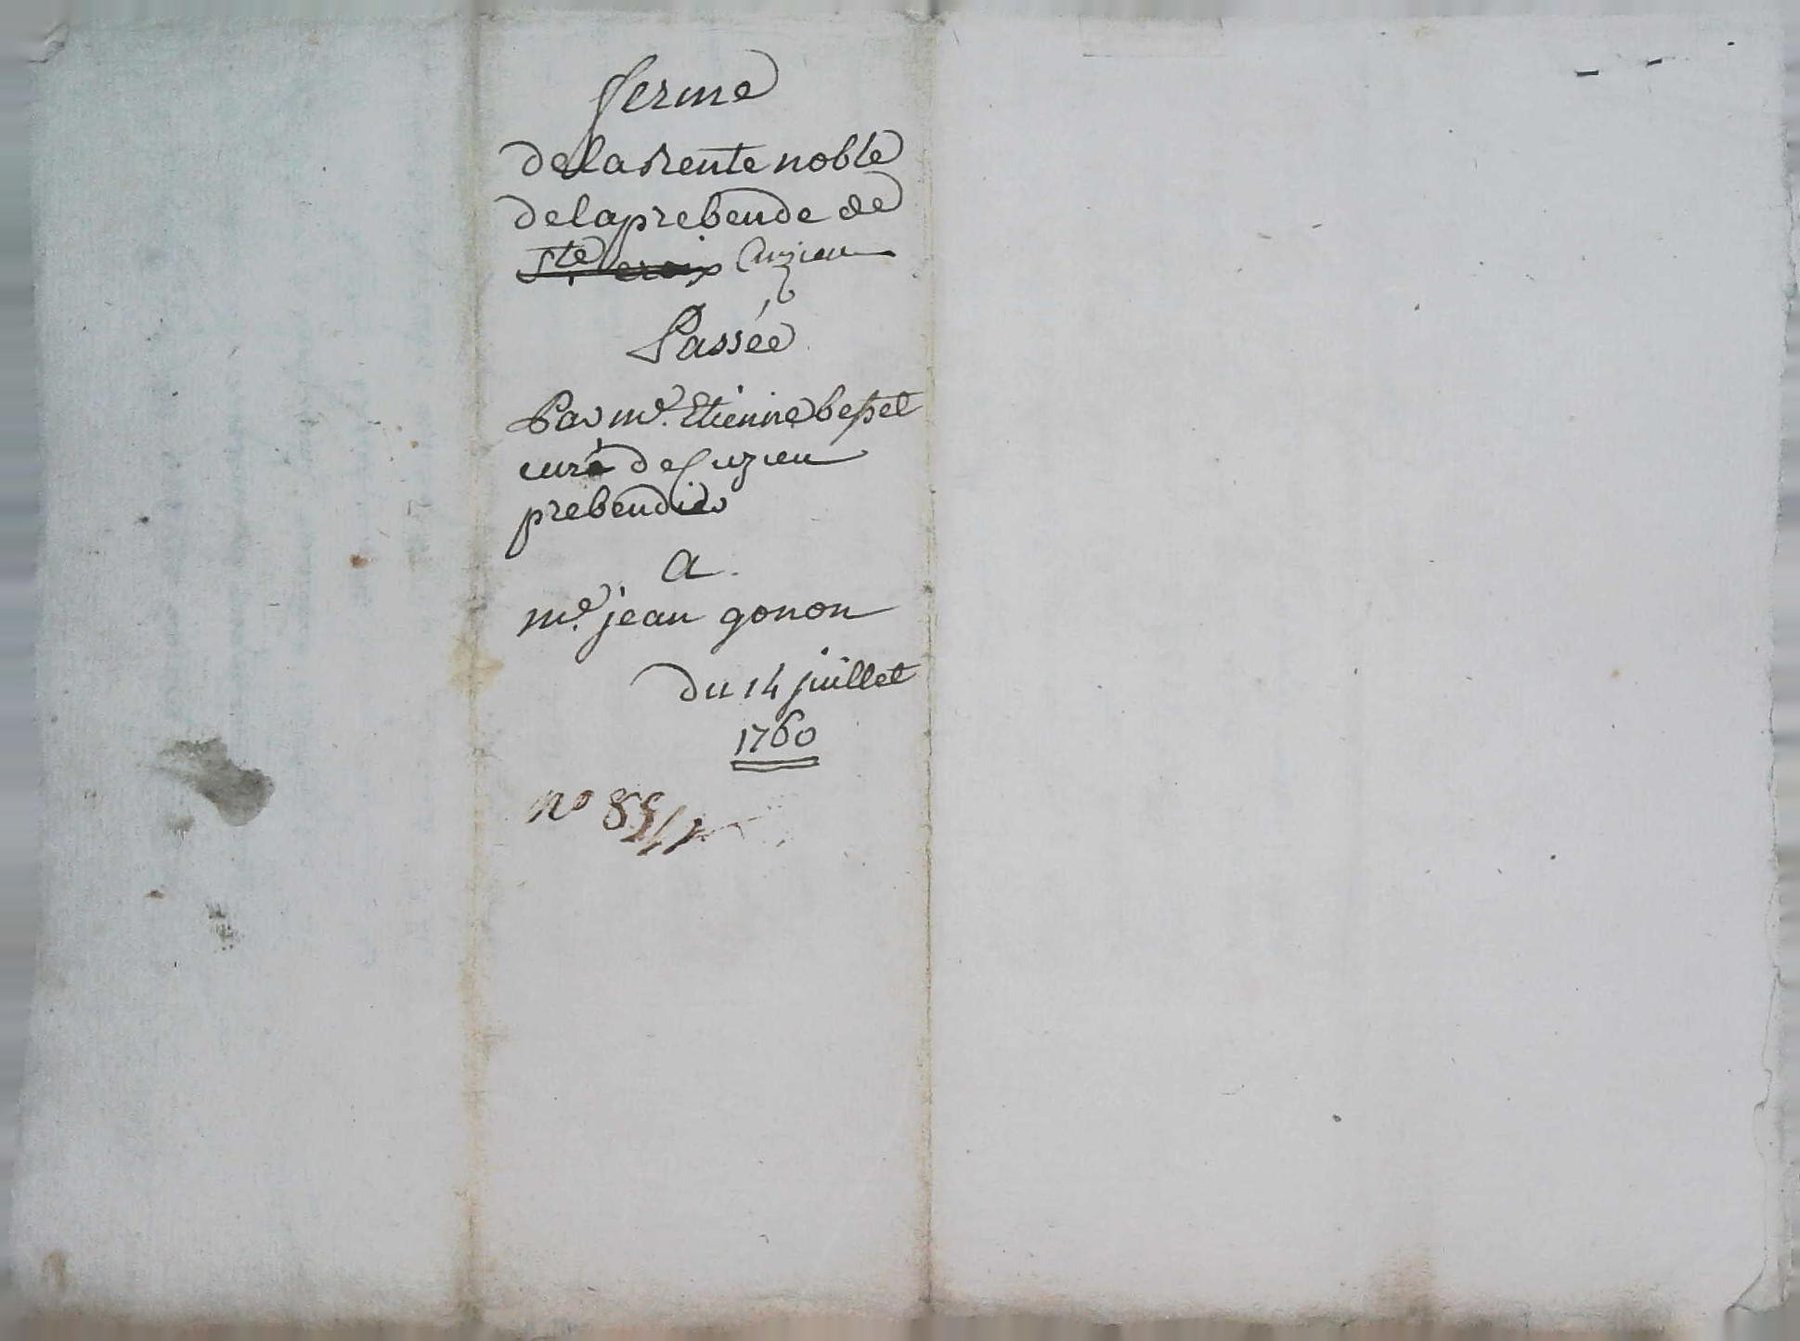 ferme
de la rente noble
de la prebende de
Ste croix Cuzieu
Passée
Par me. Etienne besset
curé de Cuzieu
prebendier
a
me. jean gonon
du 14 juillet
1760
no